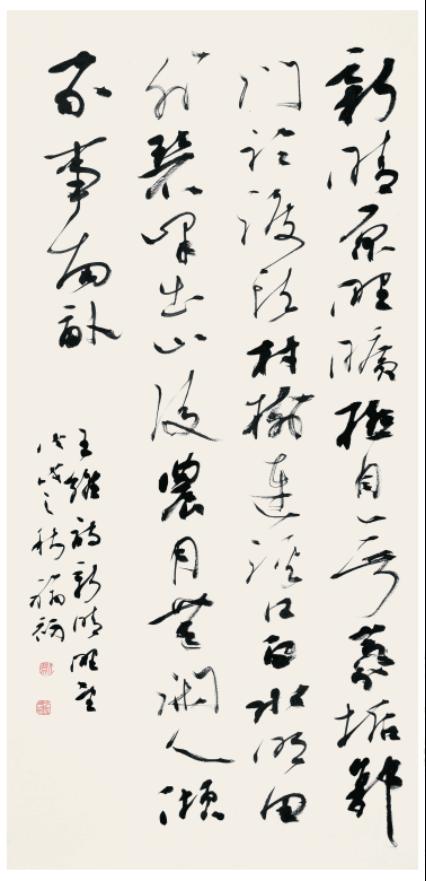 新晴原野曠極目無氛垢郭
門臨渡頭村樹連溪口白水明田
外碧峰出山後農月無閑人傾
家事南畝
王維詩新晴野望
戊戌之秋